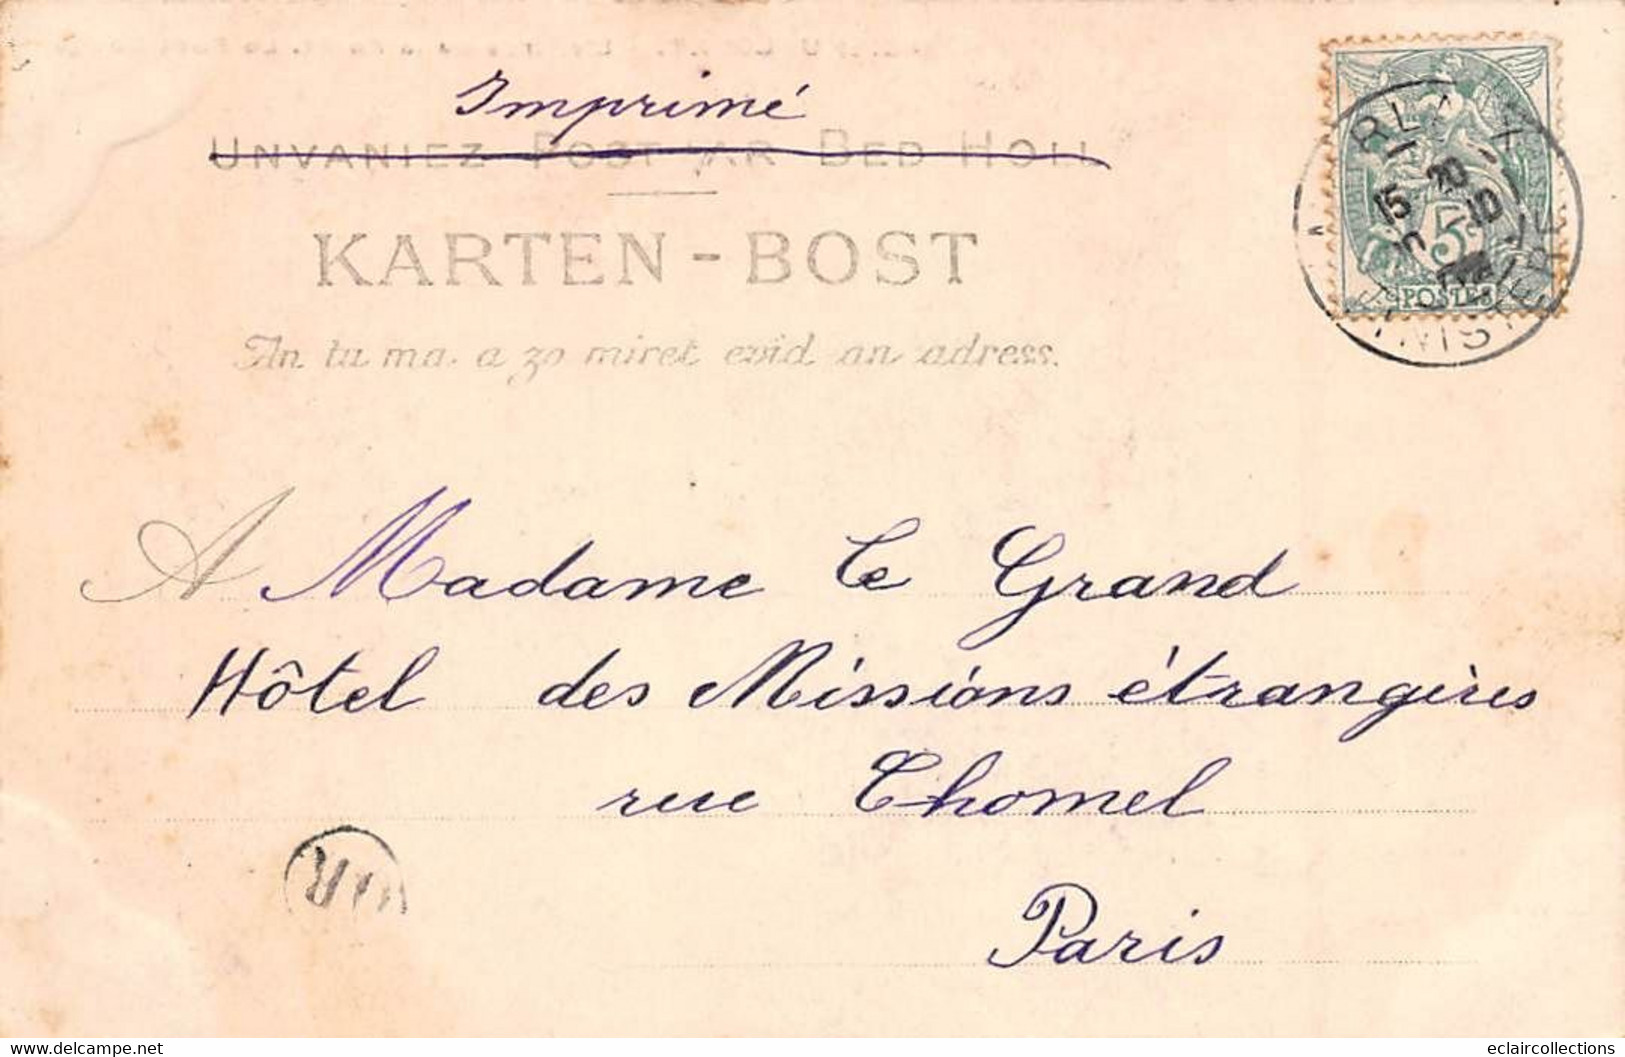 Imprimé
UNVANIEZ POST AR BED HOLL
KARTEN-BOST
An tu ma a zo miret evid an adress.
A Madame Le Grand
Hôtel des Missions étrangères
rue Chomel
Paris
5
POSTES
FINISTERE
eclaircollections
www.delcampe.net